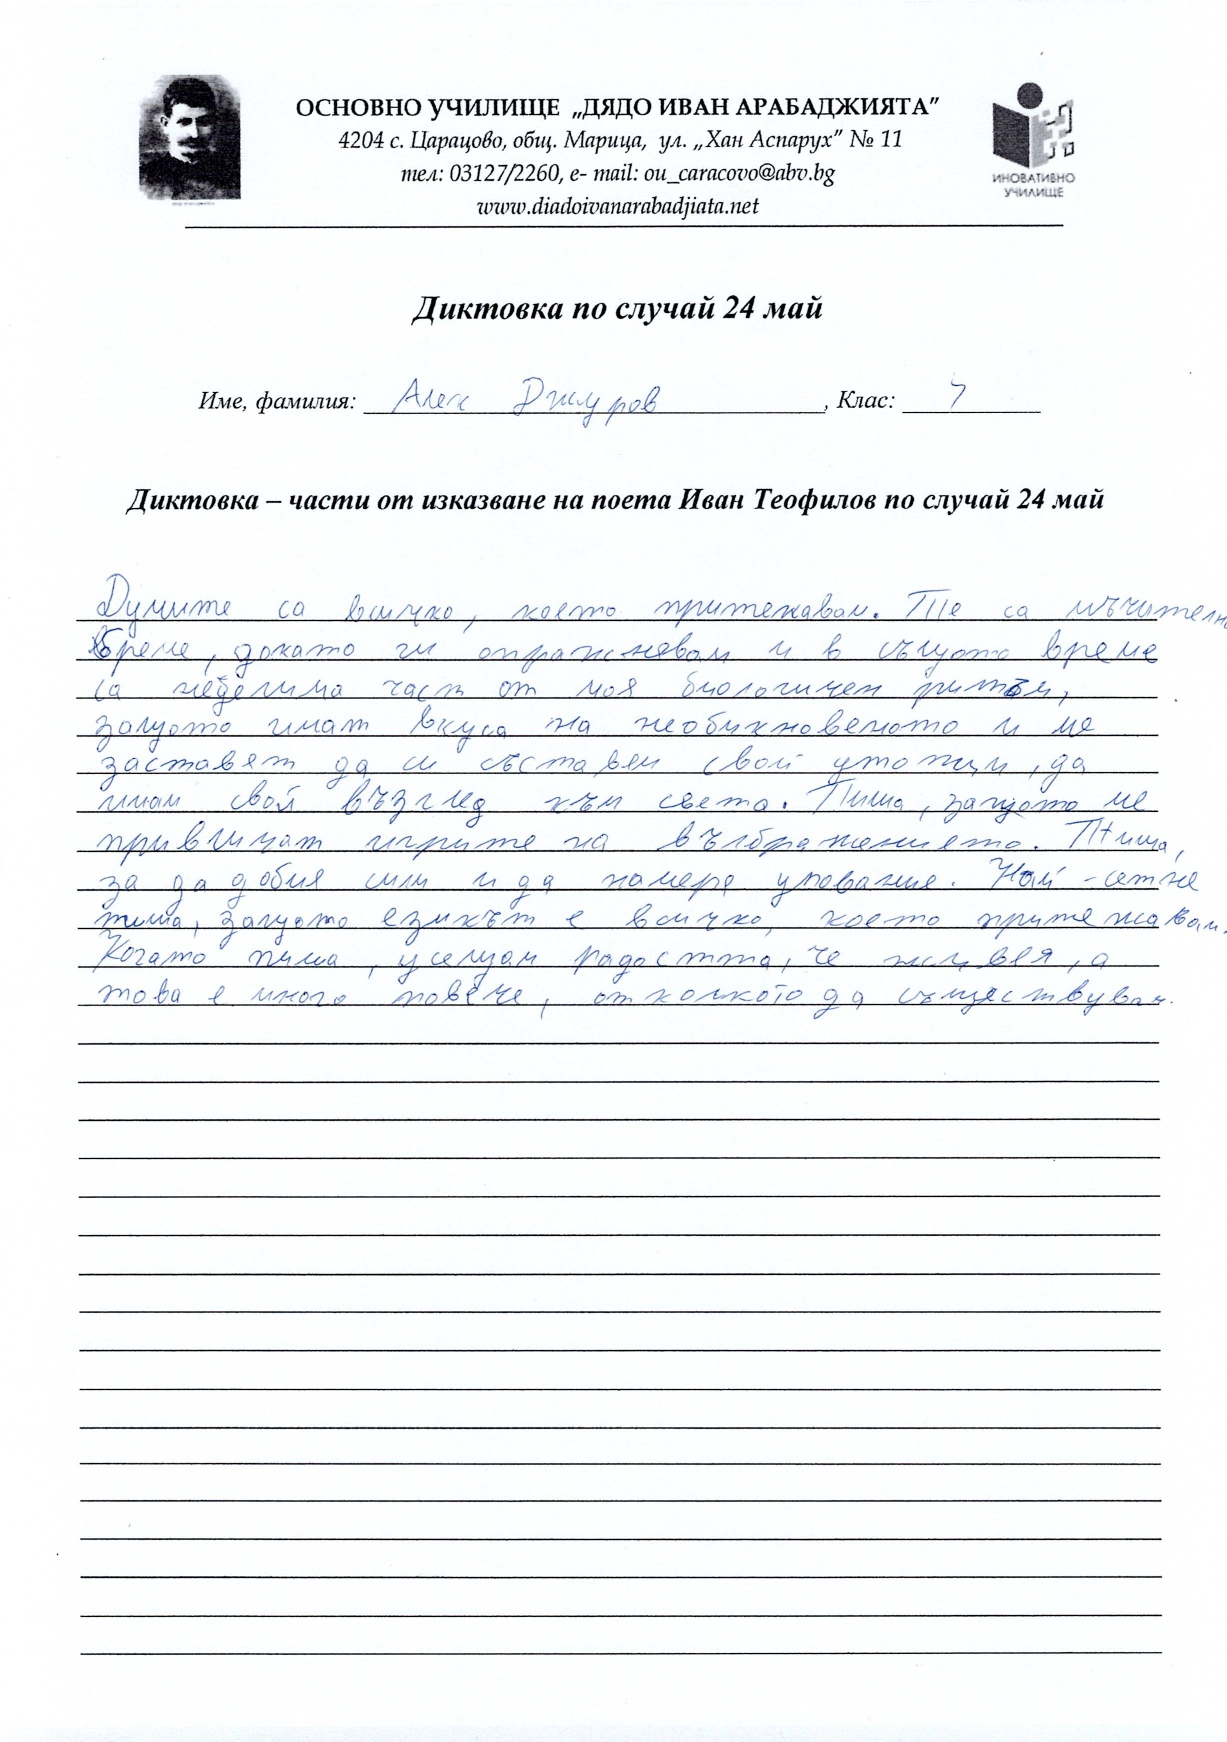 ОСНОВНО УЧИЛИЩЕ „ДЯДО ИВАН АРАБАДЖИЯТА”
4204 с. Царацово, общ. Марица, ул. „Хан Аспарух” № 11
тел: 03127/2260, e- mail: ou_caracovo@abv.bg
www.diadoivanarabadjiata.net
ИНОВАТИВНО
УЧИЛИЩЕ
Диктовка по случай 24 май
Име, фамилия: Алекс Джуров, Клас: 7
Диктовка – части от изказване на поета Иван Теофилов по случай 24 май
Думите са всичко, което притежавам. Те са мъчително
време, докато ги опражнявам и в същото време
са неделима част от моя биологичен ритъм,
защото имат вкуса на необикновеното и ме
заставят да си съставям свои утопии, да
имам свой възглед към света. Пиша, защото ме
привличат игрите на въображението. Пиша,
за да добия сили и да намеря упование. Най-сетне
пиша, защото езикът е всичко, което притежавам.
Когато пиша, усещам радостта, че живея, а
това е много повече, отколкото да съществувам.